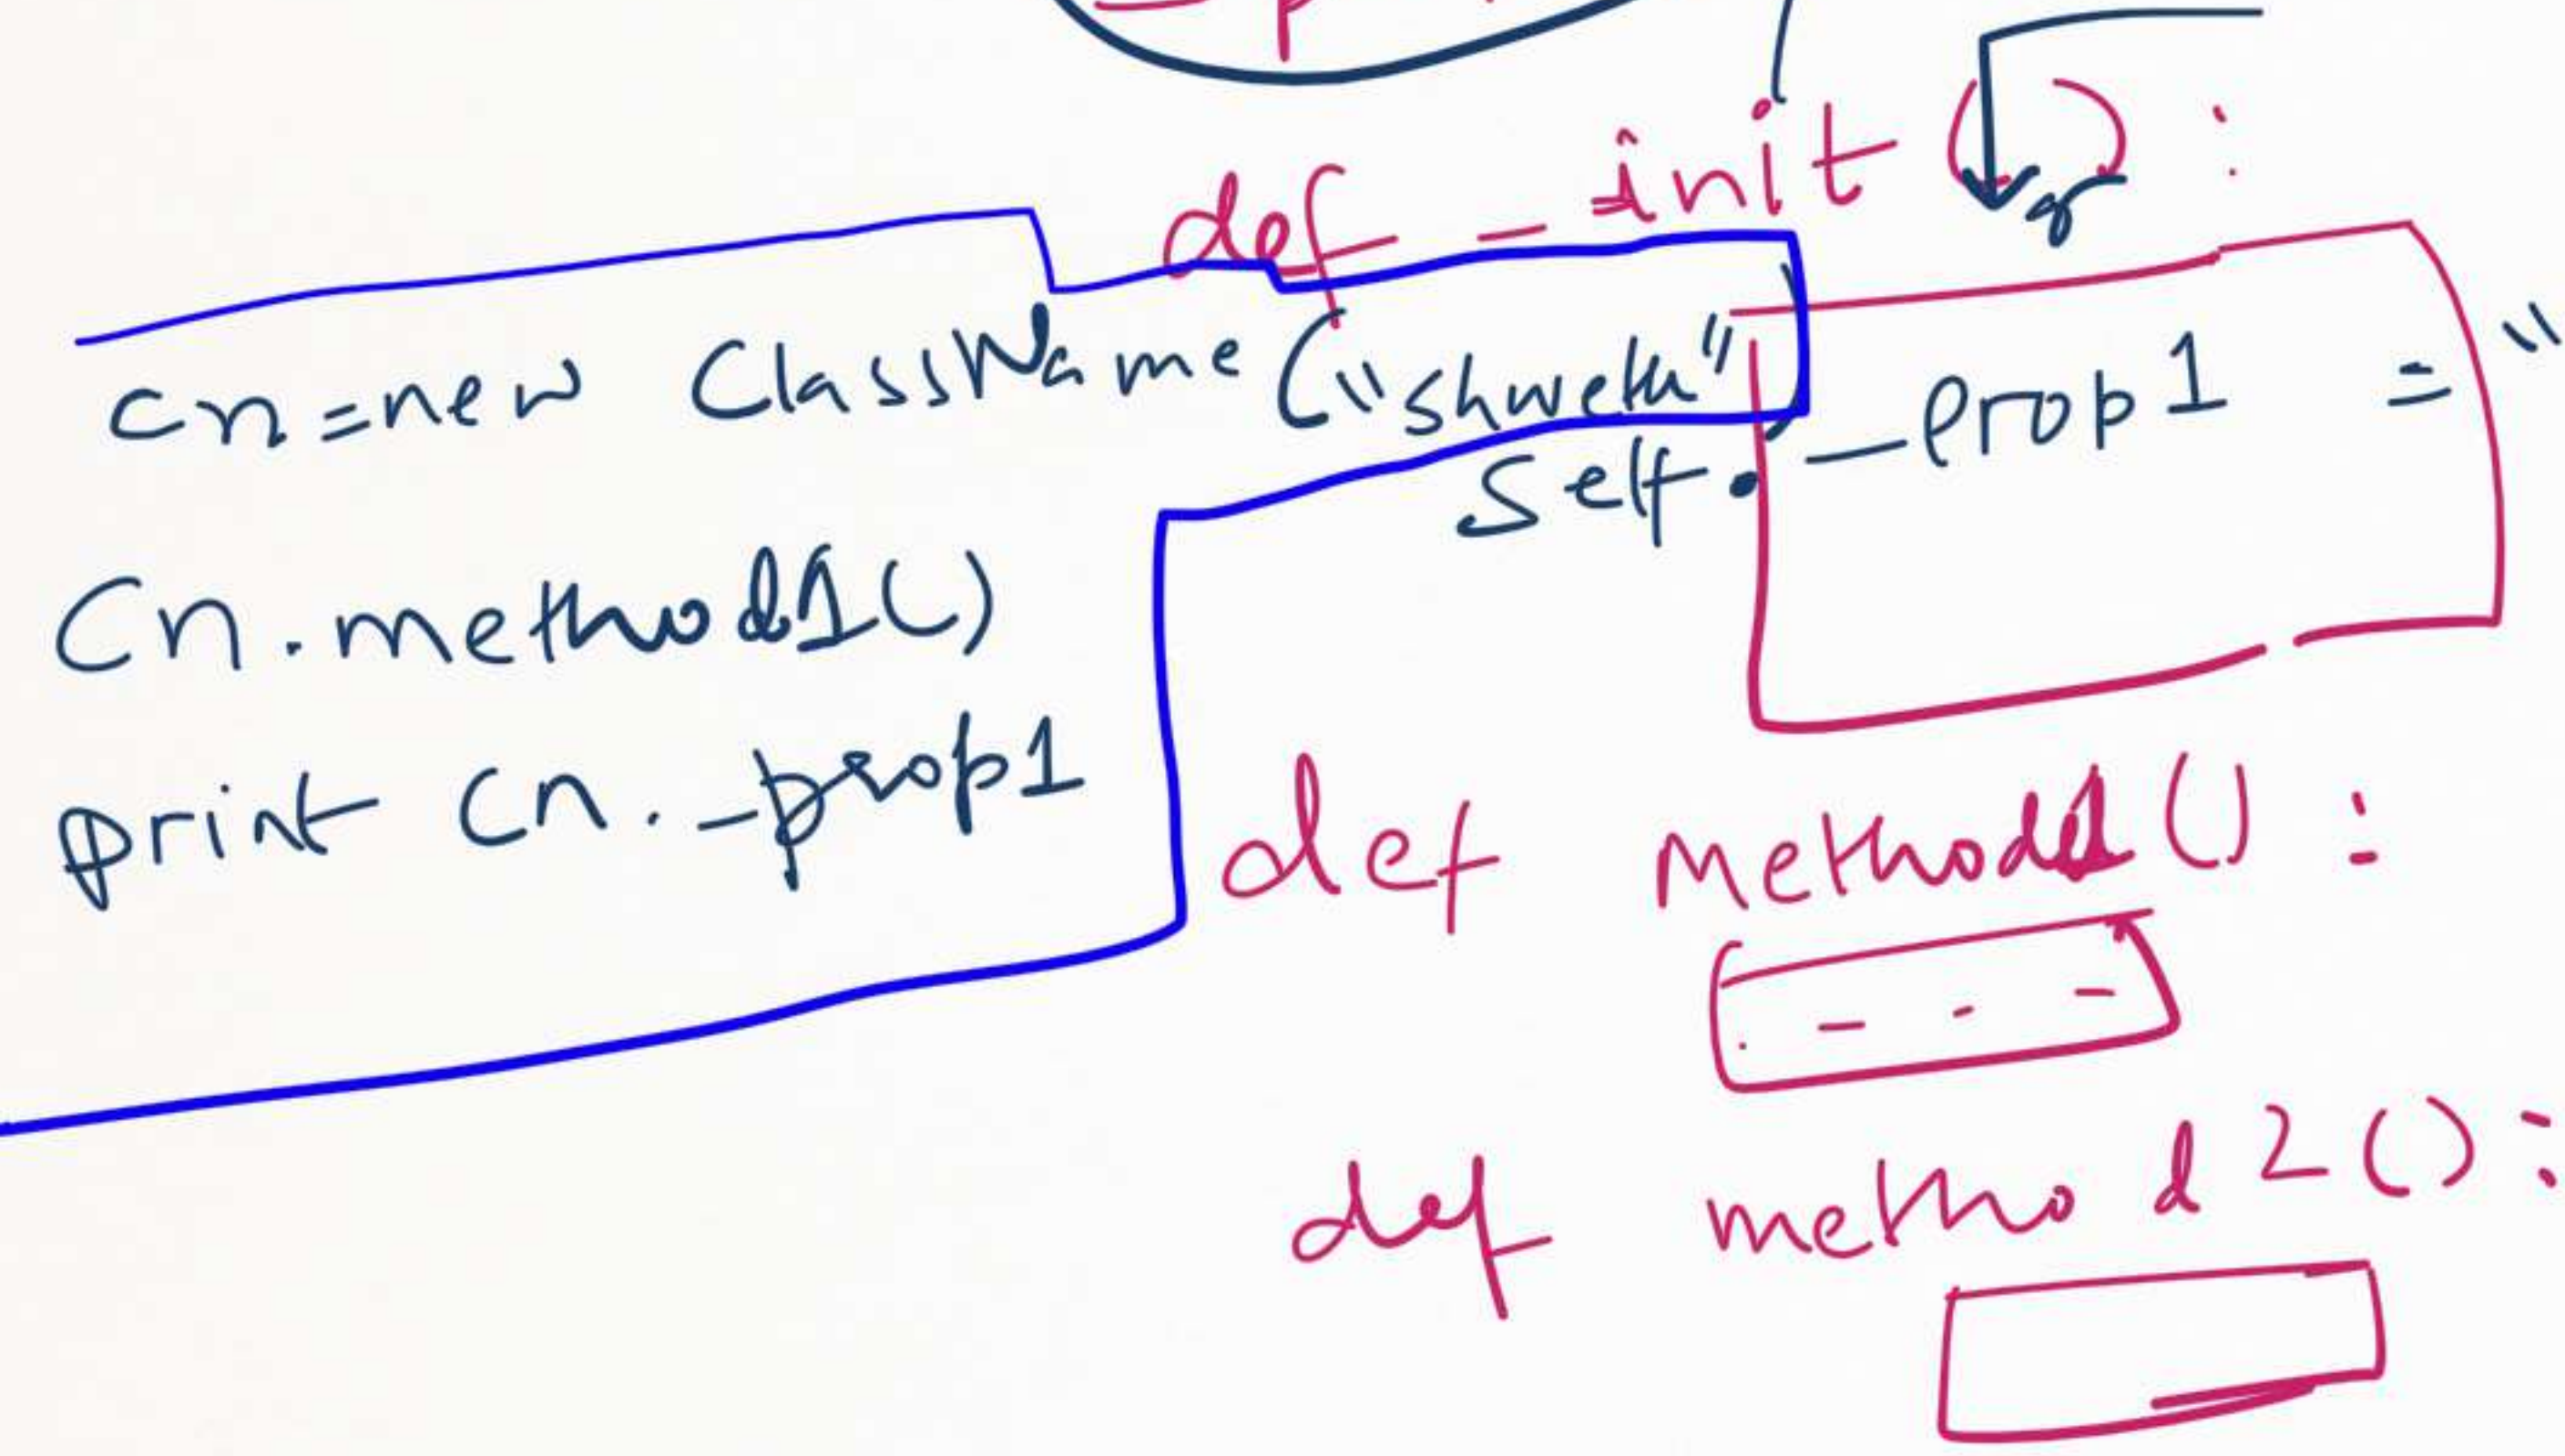 def _ init () :
cn=new ClassName ("shwetu")
self._prop1 = "
Cn.method1()
print Cn._prop1
def Method1() :
- - -
def method2():